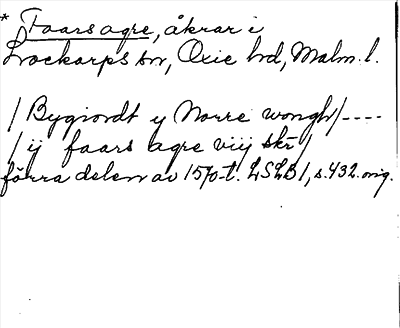 * Faars agre, åkrar i
Lockarps sn, Oxie hd, Malm. l.
/ Bygiordt y Norre wongh / ----
/ ij faars agre viij skr /
förra delen av 1570-t. LSLB1, s. 432. orig.